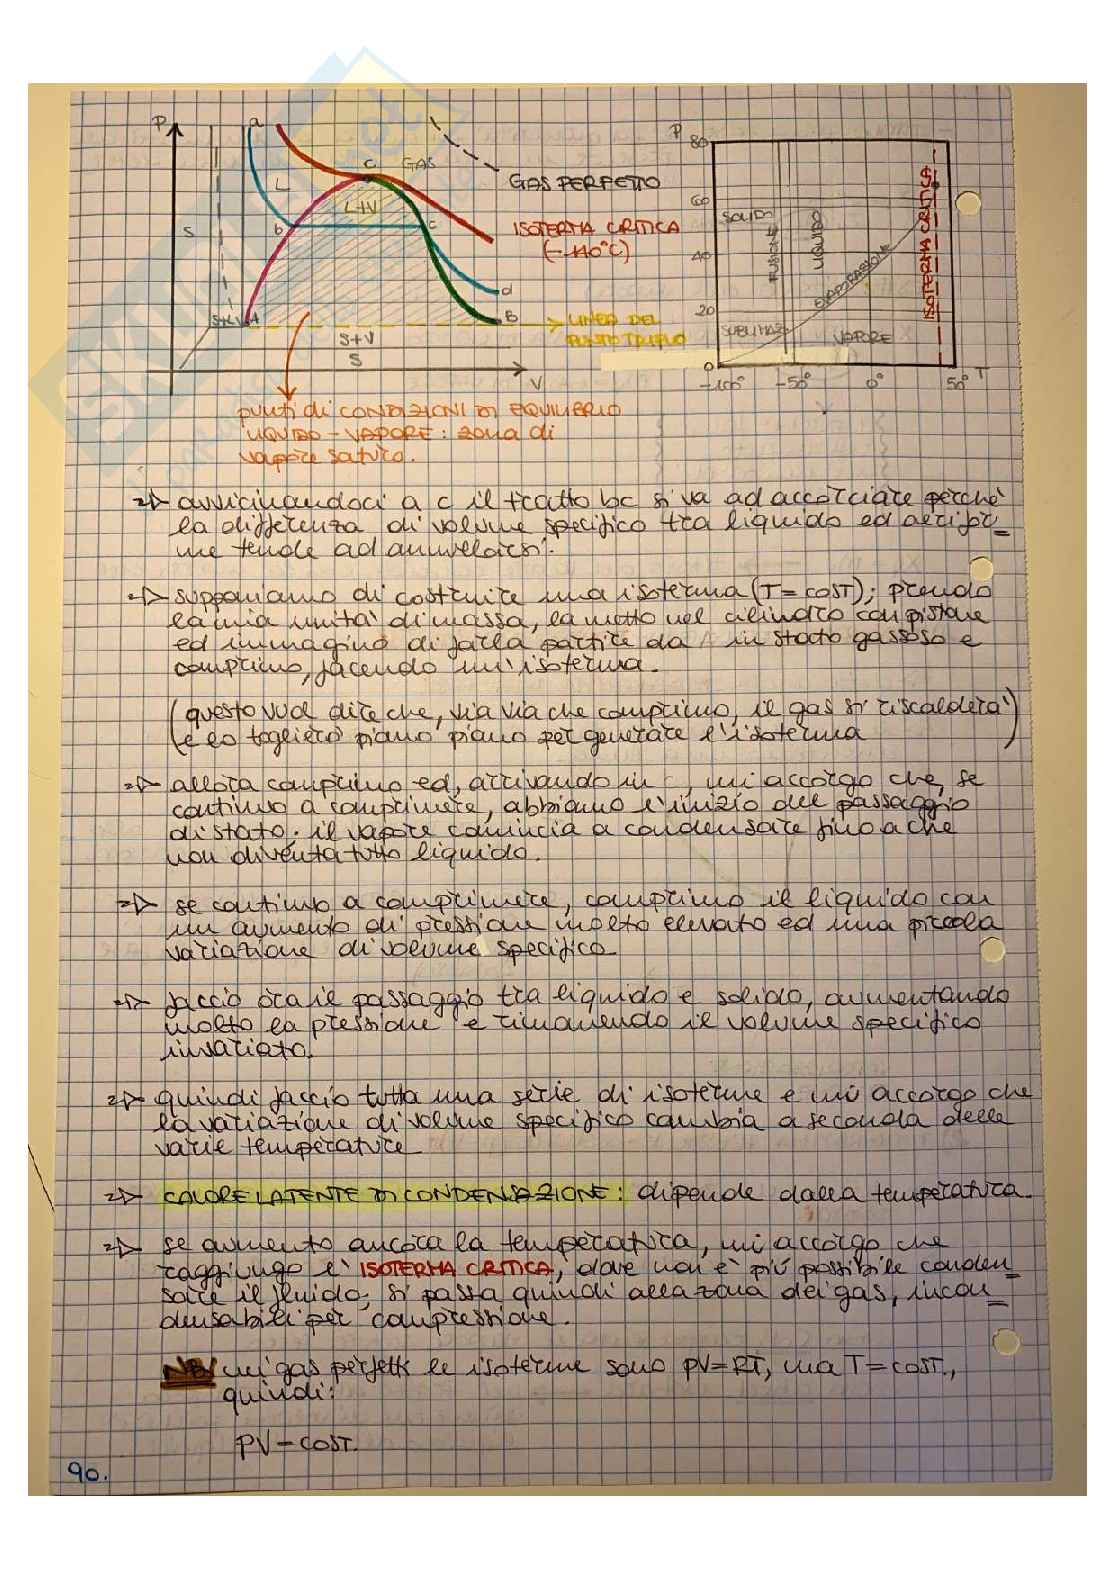 P
a
c
GAS
GAS PERFETTO
L
L+V
S
b
c
ISOTERMA CRITICA
(-140°C)
d
S+L+V
A
B
S+V
S
LINEA DEL
PUNTO TRIPLO
V
punti di CONDIZIONI DI EQUILIBRIO
LIQUIDO - VAPORE: zona di
vapore saturo.
P
80
60
40
20
0
SOLIDO
FUSIONE
LIQUIDO
EVAPORAZIONE
ISOTERMA CRITICA
SUBLIMAZ
VAPORE
-100° -50° 0° 50° T
avvicinandoci a c il tratto bc si va ad accorciare perché
la differenza di volume specifico tra liquido ed aerifor_
me tende ad annullarsi.
supponiamo di costruire una isoterma (T = COST); prendo
la mia unità di massa, la metto nel cilindro con pistone
ed immagino di farla partire da in stato gassoso e
comprimo, facendo un'isoterma.
(questo vuol dire che, via via che comprimo, il gas si riscalderà
e lo toglierò piano piano per generare l'isoterma)
allora comprimo ed, arrivando in c, mi accorgo che, se
continuo a comprimere, abbiamo l'inizio del passaggio
di stato: il vapore comincia a condensare fino a che
non diventa tutto liquido.
se continuo a comprimere, comprimo il liquido con
un aumento di pressione molto elevato ed una piccola
variazione di volume specifico.
faccio ora il passaggio tra liquido e solido, aumentando
molto la pressione e rimanendo il volume specifico
invariato.
quindi faccio tutta una serie di isoterme e mi accorgo che
la variazione di volume specifico cambia a seconda delle
varie temperature
CALORE LATENTE DI CONDENSAZIONE: dipende dalla temperatura.
se aumento ancora la temperatura, mi accorgo che
raggiungo l'ISOTERMA CRITICA, dove non è più possibile conden_
sare il fluido; si passa quindi alla zona dei gas, incon_
densabili per compressione.
NB/ nei gas perfetti le isoterme sono PV=RT, ma T=COST.,
quindi:
PV=COST.
90.